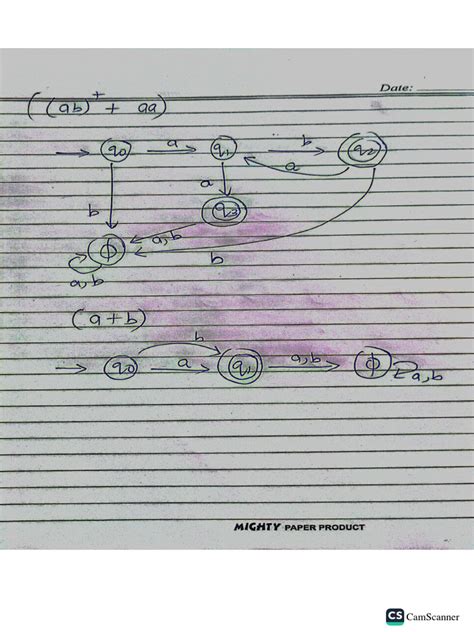 Date:
((ab)⁺ + aa)
→ q0 a q1 b q2
a
a
b q3
a,b
ϕ b
a,b
(a+b)
b
→ q0 a q1 a,b ϕ a,b
MIGHTY PAPER PRODUCT
CS CamScanner